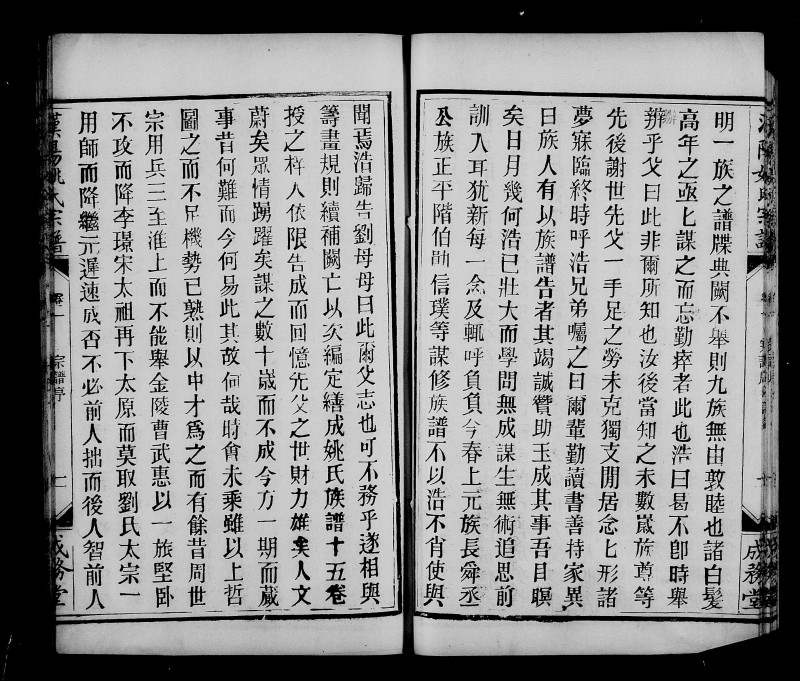 明一族之譜牒典闕不舉則九族無由敦睦也諸白髮
高年之亟亟謀之而忘勤瘁者此也浩曰曷不卽時舉
辦乎父曰此非爾所知也汝後當知之未數歲族尊等
先後謝世先父一手足之勞未克獨支閒居念切形諸
夢寐臨終時呼浩兄弟囑之曰爾輩勤讀書善持家異
日族人有以族譜告者其竭誠贊助玉成其事吾目瞑
矣日月幾何浩已壯大而學問無成謀生無術追思前
訓入耳猶新每一念及輒呼負負今春上元族長舜丞
公族正平階伯勛信璞等謀修族譜不以浩不肖使與
成務堂
漢陽姚氏宗譜
卷一
宗譜序
十一
成務堂
聞焉浩歸告劉母母曰此爾父志也可不務乎遂相與
籌畫規則續補闕亡以次編定繕成姚氏族譜十五卷
授之梓人依限告成而回憶先父之世財力雄矣人文
蔚矣眾情踴躍矣謀之數十歲而不成今方一期而蕆
事昔何難而今何易此其故何哉時會未乘雖以上哲
圖之而不足機勢已熟則以中才為之而有餘昔周世
宗用兵三至淮上而不能舉金陵曹武惠以一旅堅臥
不攻而降李璟宋太祖再下太原而莫取劉氏太宗一
用師而降繼元遲速成否不必前人拙而後人智前人